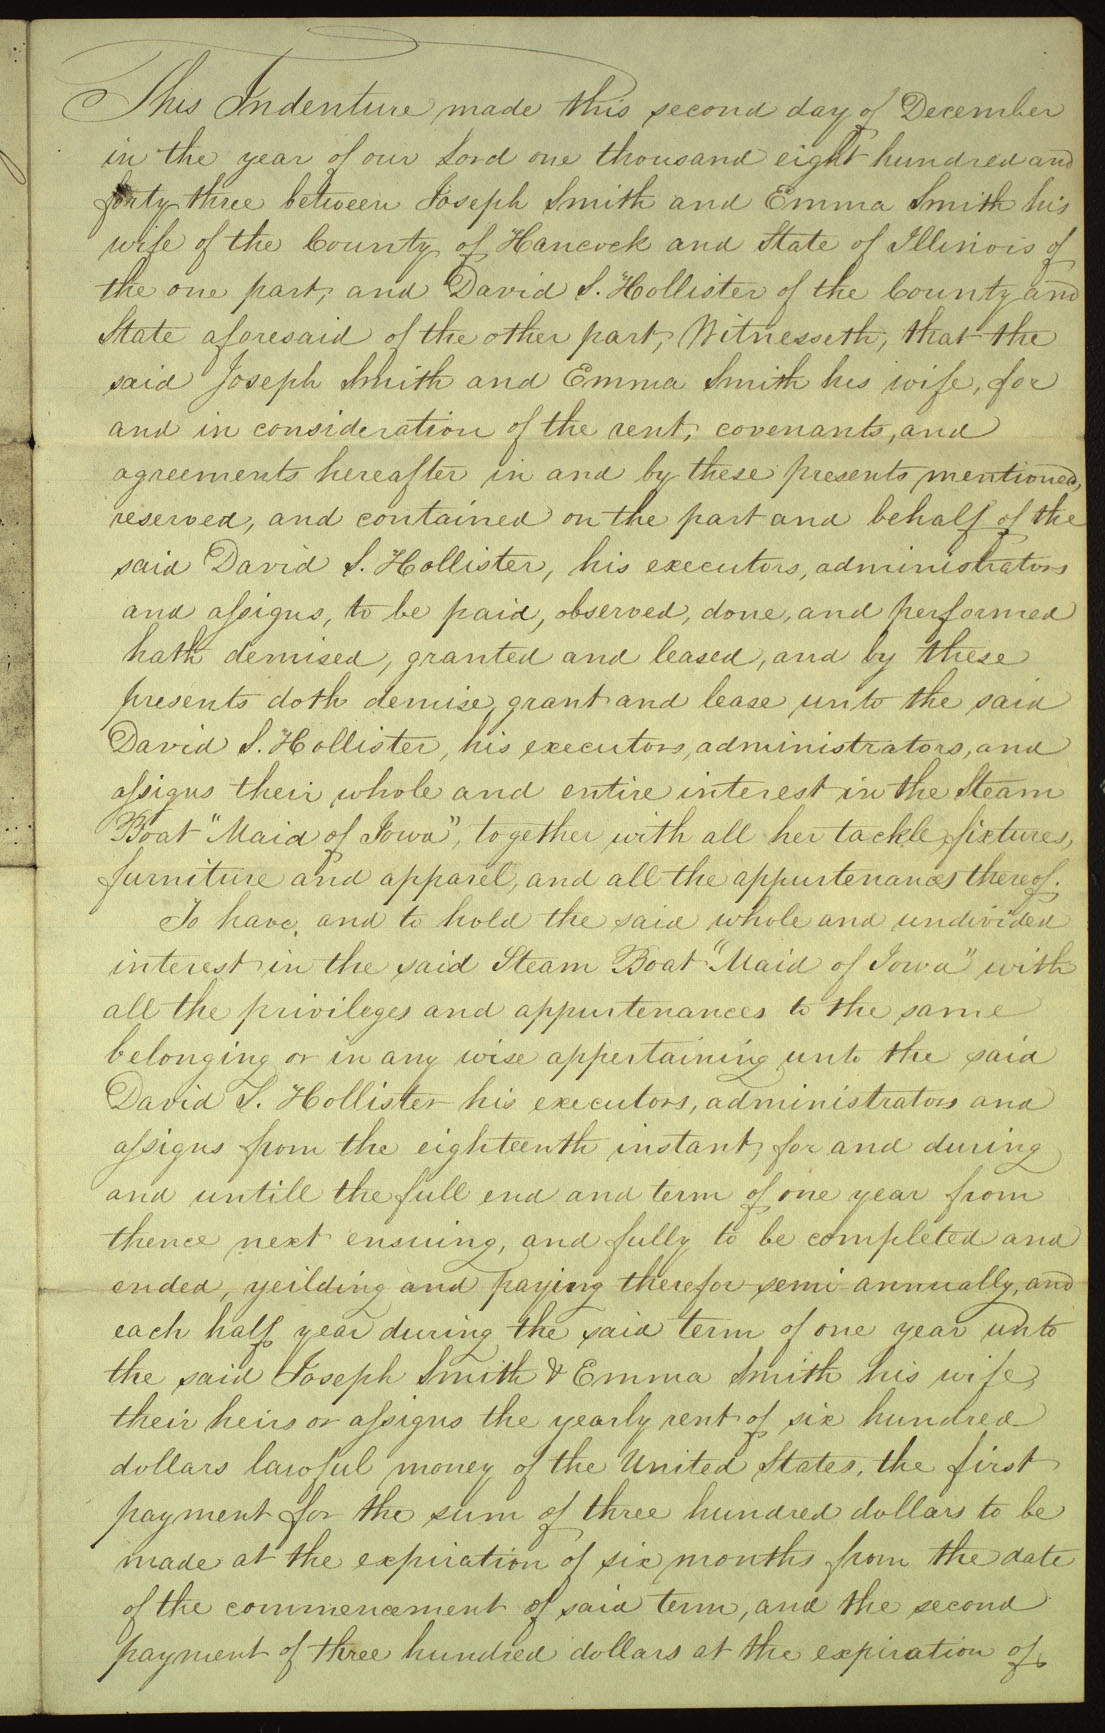 This Indenture made this second day of December
in the year of our Lord one thousand eight hundred and
forty three between Joseph Smith and Emma Smith his
wife of the County of Hancock and State of Illinois of
the one part, and David S. Hollister of the County and
State aforesaid of the other part, Witnesseth, that the
said Joseph Smith and Emma Smith his wife, for
and in consideration of the rent, covenants, and
agreements hereafter in and by these presents mentioned,
reserved, and contained on the part and behalf of the
said David S. Hollister, his executors, administrators
and assigns, to be paid, observed, done, and performed
hath demised, granted and leased, and by these
presents doth demise, grant and lease unto the said
David S. Hollister, his executors, administrators, and
assigns their whole and entire interest in the Steam
Boat "Maid of Iowa", together with all her tackle fixtures,
furniture and apparel, and all the appurtenances thereof.
To have, and to hold the said whole and undivided
interest in the said Steam Boat "Maid of Iowa" with
all the privileges and appurtenances to the same
belonging or in any wise appertaining unto the said
David S. Hollister his executors, administrators and
assigns from the eighteenth instant, for and during
and untill the full end and term of one year from
thence next ensuing, and fully to be completed and
ended, yeilding and paying therefor semi annually, and
each half year during the said term of one year unto
the said Joseph Smith & Emma Smith his wife,
their heirs or assigns the yearly rent of six hundred
dollars lawful money of the United States, the first
payment for the sum of three hundred dollars to be
made at the expiration of six months from the date
of the commencement of said term, and the second
payment of three hundred dollars at the expiration of